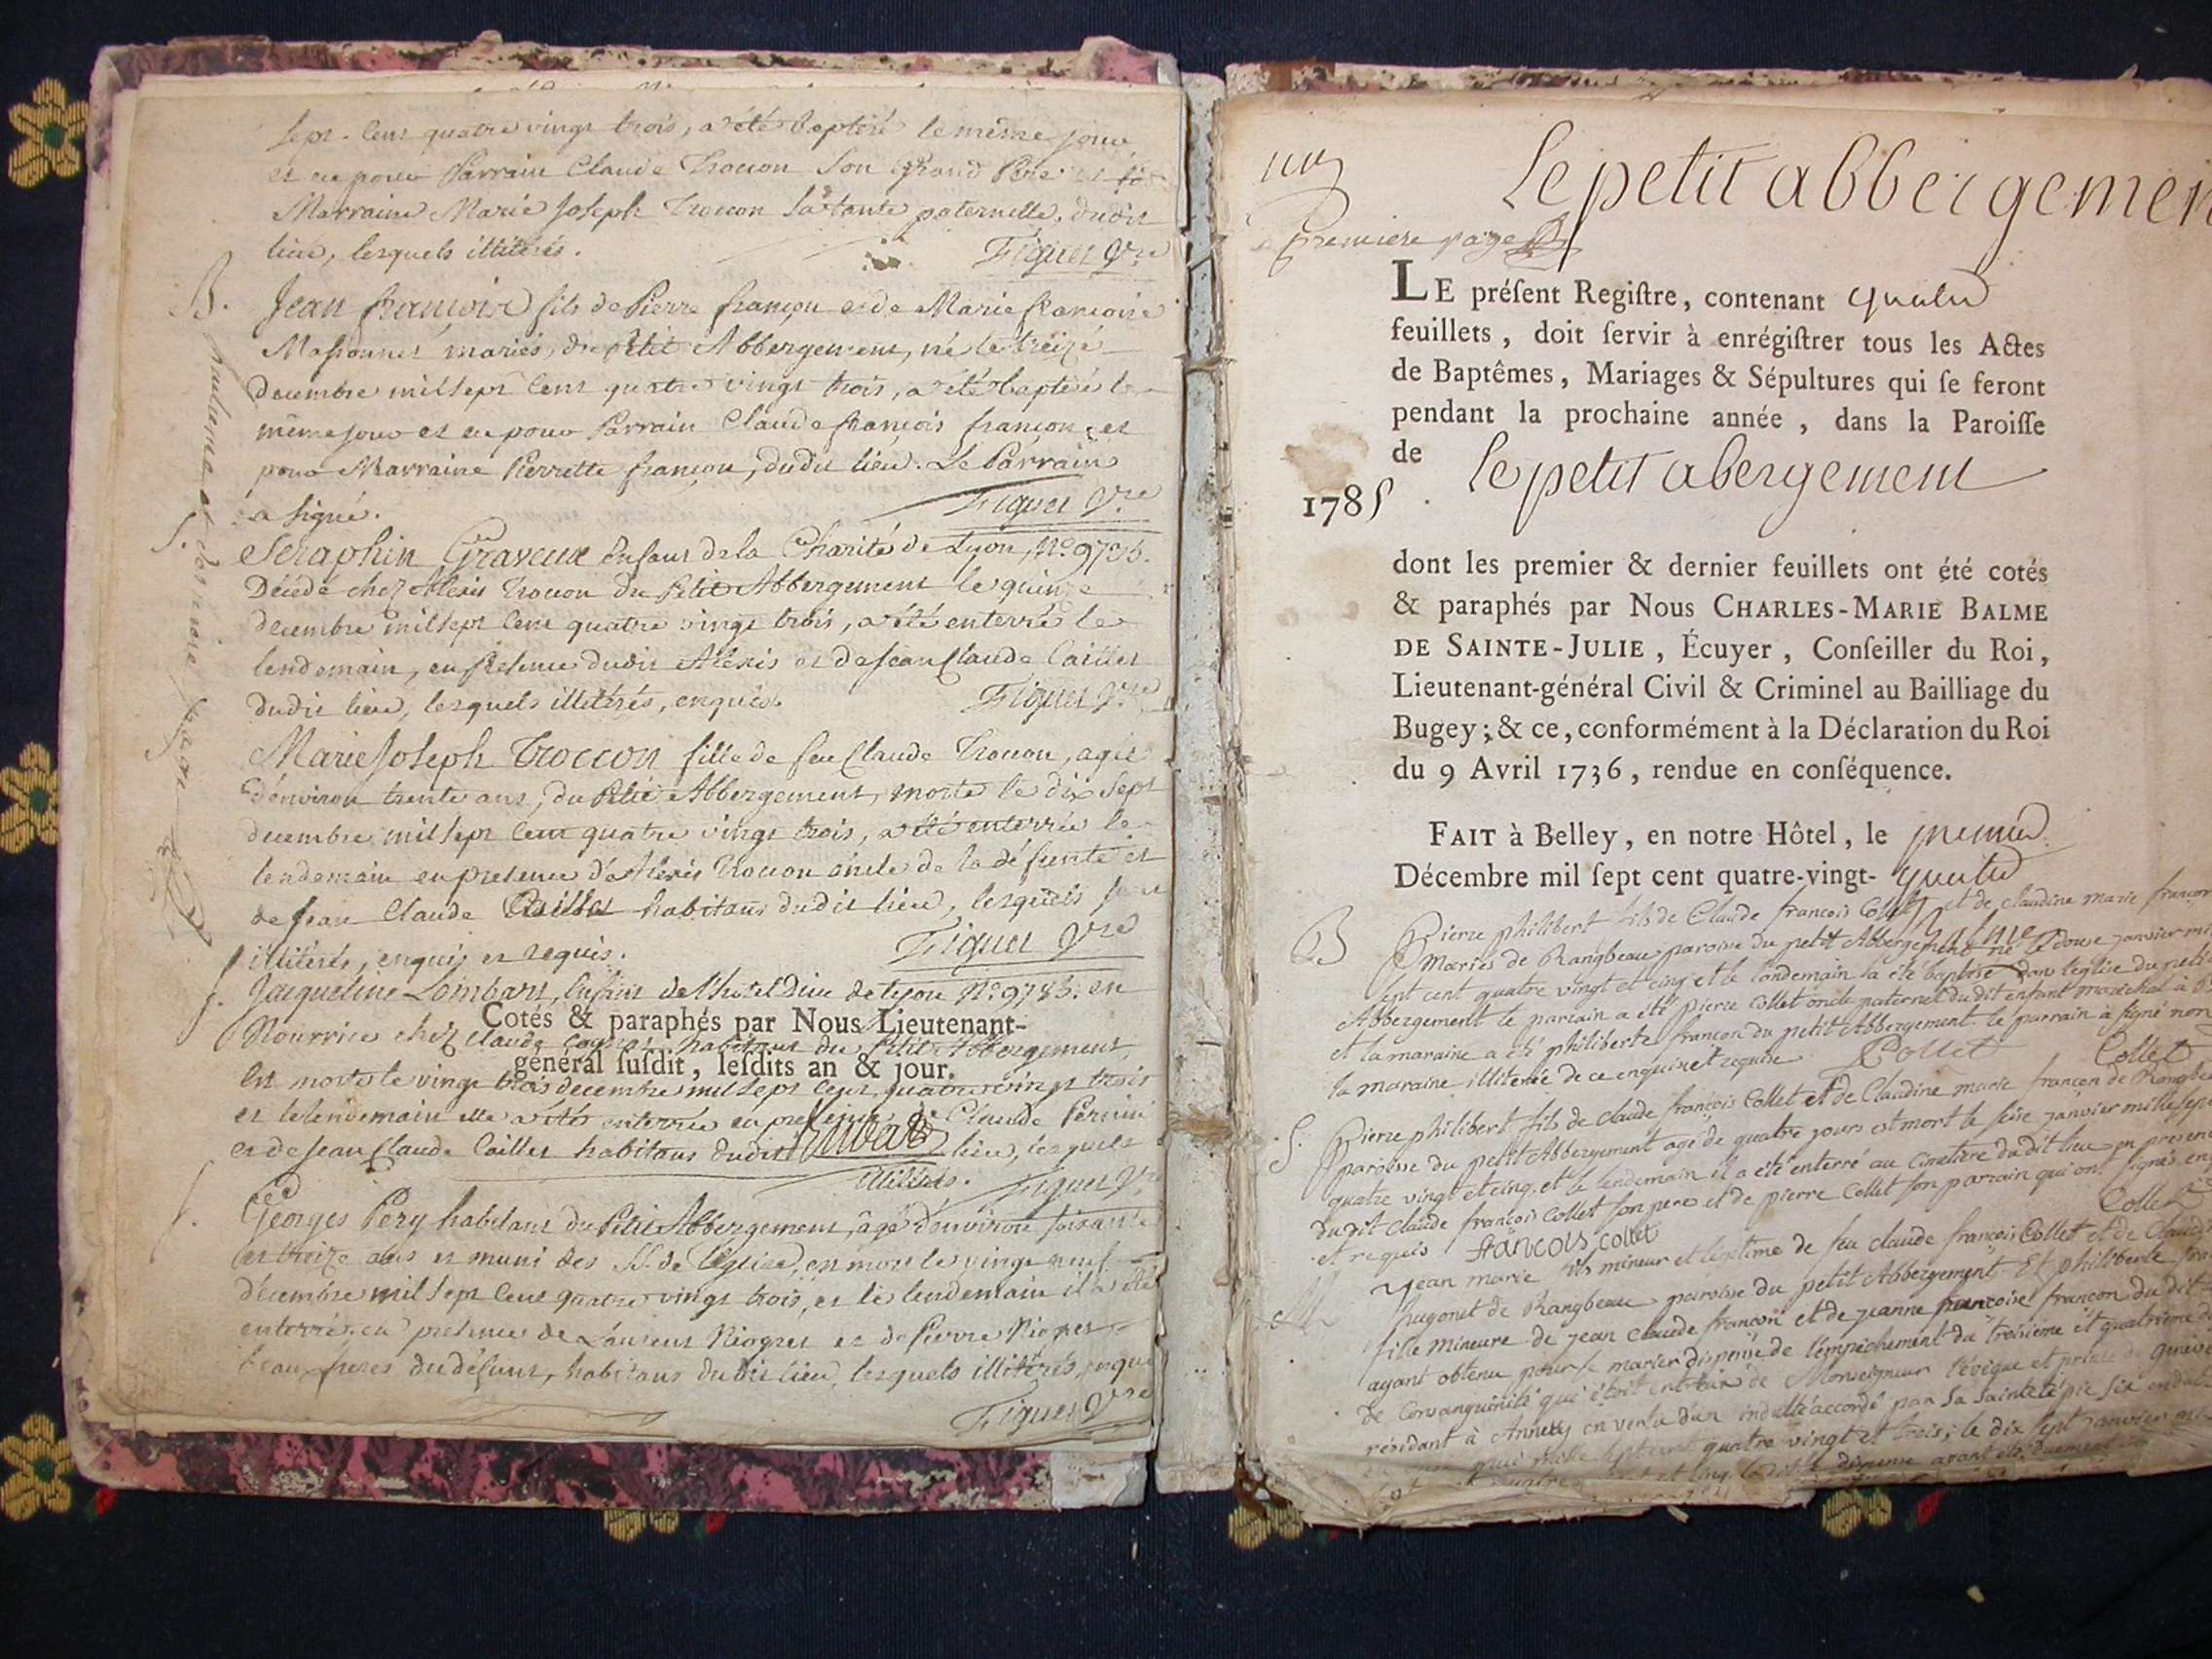 sept cent quatre vingt trois, a été baptisé le même jour
et eu pour Parrain Claude Troccon Son Grand Pere et
Marraine Marie Joseph Troccon Sa tante paternelle, dudit
lieu, lesquels illiterés.
Figuet Vre
B. Jean françois fils de Pierre françon et de Marie françoise
mariés, du Petit Abbergement, né le treize
decembre mil sept cent quatre vingt trois, a été baptisé le
même jour et eu pour Parrain Claude françois françon, et
pour Marraine Pierrette françon, dudit lieu. Le Parrain
a signé.
Figuet Vre
S. Seraphin Graveux Enfant de la Charité de Lyon, No
Décédé chez Alexis Troccon du Petit Abbergement le quinze
decembre mil sept cent quatre vingt trois, a été enterré le
lendemain, en presence dudit Alexis et de Jean Claude Caillet
dudit lieu, lesquels illiterés, enquis.
Figuet Vre
Marie Joseph Troccon fille de feu Claude Troccon, agée
d'environ trente ans, du Petit Abbergement, morte le dix sept
decembre mil sept cent quatre vingt trois, a été enterrée le
lendemain en presence d'Alexis Troccon oncle de la défunte et
de Jean Claude Caillet habitans dudit lieu, lesquels sont
illiterés, enquis et requis.
Figuet Vre
S. Jacqueline Lombart, Enfant de l'hotel Dieu de Lyon No 9783. en
Nourrice chez Claude habitant du Petit Abbergement,
Cotés & paraphés par Nous Lieutenant-
général susdit, lesdits an & jour.
est morte le vingt trois decembre mil sept cent quatre vingt trois
et le lendemain elle a été enterrée en presence de Claude
et de Jean Claude Caillet habitans dudit lieu, lesquels
illiterés.
Figuet Vre
S. Georges Pery habitant du Petit Abbergement, âgé d'environ soixante
et treize ans et muni des SS. de l'Eglise, est mort le vingt neuf
décembre mil sept cent quatre vingt trois, et le lendemain il a été
enterré en presence de Laurent et de Pierre
beaux freres du défunt, habitans dudit lieu, lesquels illiterés, enquis
Figuet Vre
et derniere page
Le petit abbergemen
premiere page
LE préſent Regiſtre, contenant quatre
feuillets, doit ſervir à enrégiſtrer tous les Actes
de Baptêmes, Mariages & Sépultures qui ſe feront
pendant la prochaine année, dans la Paroiſſe
de le petit abergement
1785.
dont les premier & dernier feuillets ont été cotés
& paraphés par Nous CHARLES-MARIE BALME
DE SAINTE-JULIE, Écuyer, Conſeiller du Roi,
Lieutenant-général Civil & Criminel au Bailliage du
Bugey; & ce, conformément à la Déclaration du Roi
du 9 Avril 1736, rendue en conſéquence.
FAIT à Belley, en notre Hôtel, le premier
Décembre mil ſept cent quatre-vingt-quatre
Balme
B Pierre philibert fils de Claude françois Collet et de claudine marie françon
Mariés de Rangbeau paroisse du petit Abbergement né le douze janvier mil
sept cent quatre vingt et cinq et le landemain a été baptisé dans leglise du petit
Abbergement le parrain a été pierre Collet oncle paternel dudit enfant marechal à
et la maraine a été philiberte françon du petit Abbergement. le parrain à signé non
la maraine illiterée de ce enquise et requise
PCollet
Collet
S. Pierre philibert fils de claude françois Collet et de Claudine marie françon de Rangbeau
paroisse du petit Abbergement agé de quatre jours est mort le seise janvier mille sept
quatre vingt et cinq, et le lendemain il a été enterré au cimetiere dudit lieu en presence
dudit claude françois Collet son pere et de pierre Collet son parrain qui ont signés en
et requis
françois collet
Collet
M Jean marie fils mineur et legitime de feu claude françois Collet et de Claudine
hugonet de Rangbeau paroisse du petit Abbergement. Et philiberte fran
fille mineure de jean claude françon et de jeanne françoise françon dudit
ayant obtenu pour se marier dispense de l'empêchement du troisieme et quatrieme
de Consanguinité qui étoit entre eux de Monseigneur l'évêque et prince de genève
résidant à Annecy en vertu d'un indulte accordé par sa sainteté pie six en date
mille sept cent quatre vingt et trois; le dix sept janvier
et cinq, ladite dispense ayant été duement